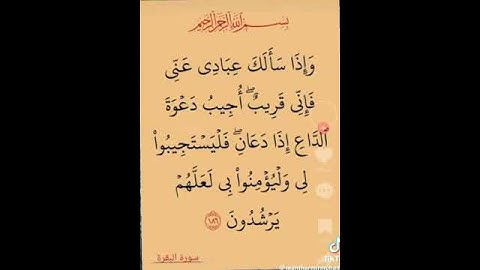 بِسْمِ اللَّهِ الرَّحْمَٰنِ الرَّحِيمِ
وَإِذَا سَأَلَكَ عِبَادِى عَنِّى
فَإِنِّى قَرِيبٌ ۖ أُجِيبُ دَعْوَةَ
ٱلدَّاعِ إِذَا دَعَانِ ۖ فَلْيَسْتَجِيبُوا۟
لِى وَلْيُؤْمِنُوا۟ بِى لَعَلَّهُمْ
يَرْشُدُونَ ١٨٦
سورة البقرة